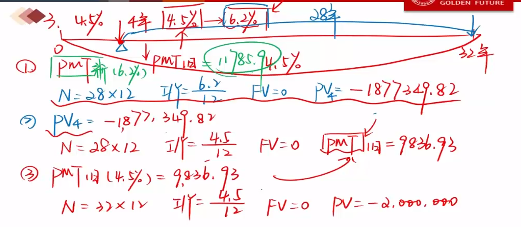 GOLDEN FUTURE
3. 4.5% 4年 4.5% → 6.2% 28年
0 32年
① PMT新(6.2%) PMT旧 = 11785.9 4.5%
N=28×12 I/Y=6.2/12 FV=0 PV4=-1877349.82
② PV4=-1877,349.82
N=28×12 I/Y=4.5/12 FV=0 PMT旧=9836.93
③ PMT旧(4.5%)=9836.93
N=32×12 I/Y=4.5/12 FV=0 PV=-2,000,000